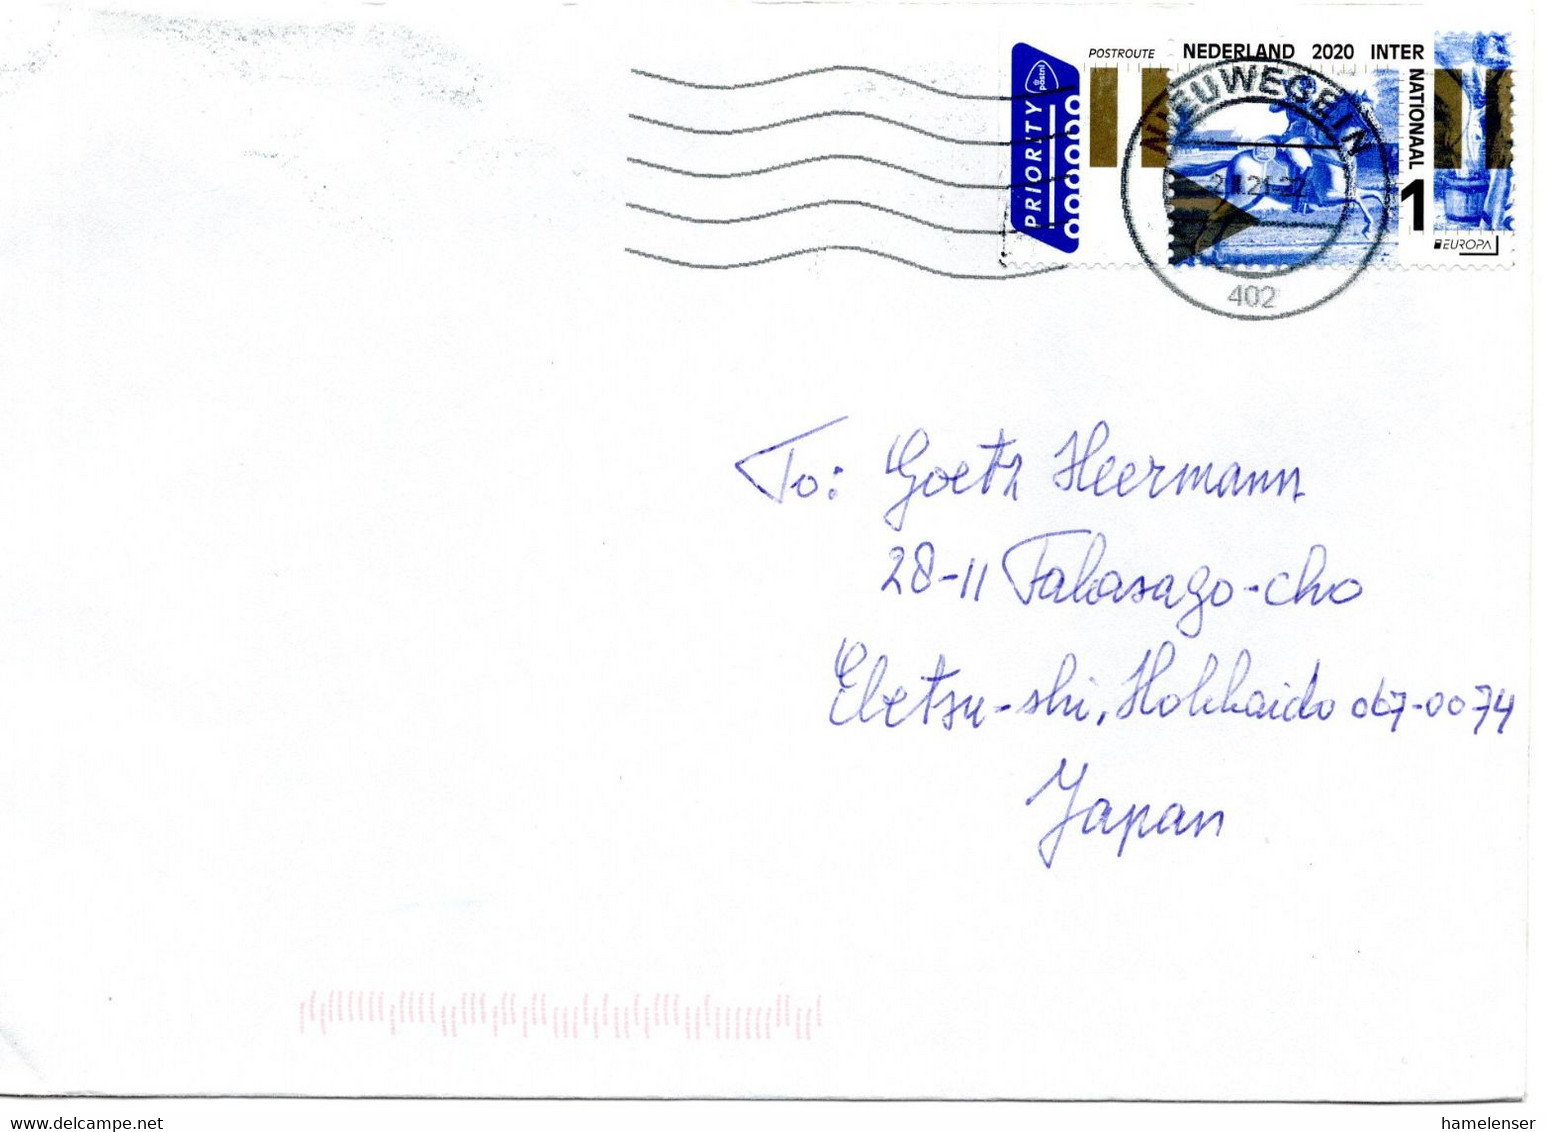 POSTROUTE NEDERLAND 2020 INTER
NATIONAAL
1
postnl
PRIORITY
EUROPA
NIEUWEGEIN
402
To: Goetz Heermann
28-11 Takasago-cho
Ebetsu-shi, Hokkaido 067-0074
Japan
www.delcampe.net
hamelenser